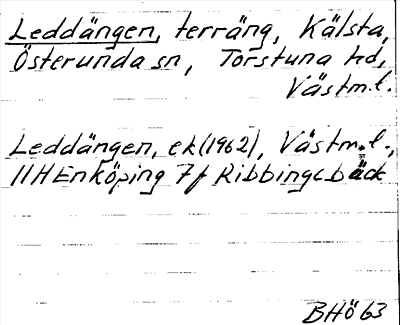 Leddängen, terräng, Kälsta,
Österunda sn, Torstuna hd,
Västm.l.
Leddängen, ek (1962), Västm.l.,
11H Enköping 7f Ribbingebäck
BHö 63